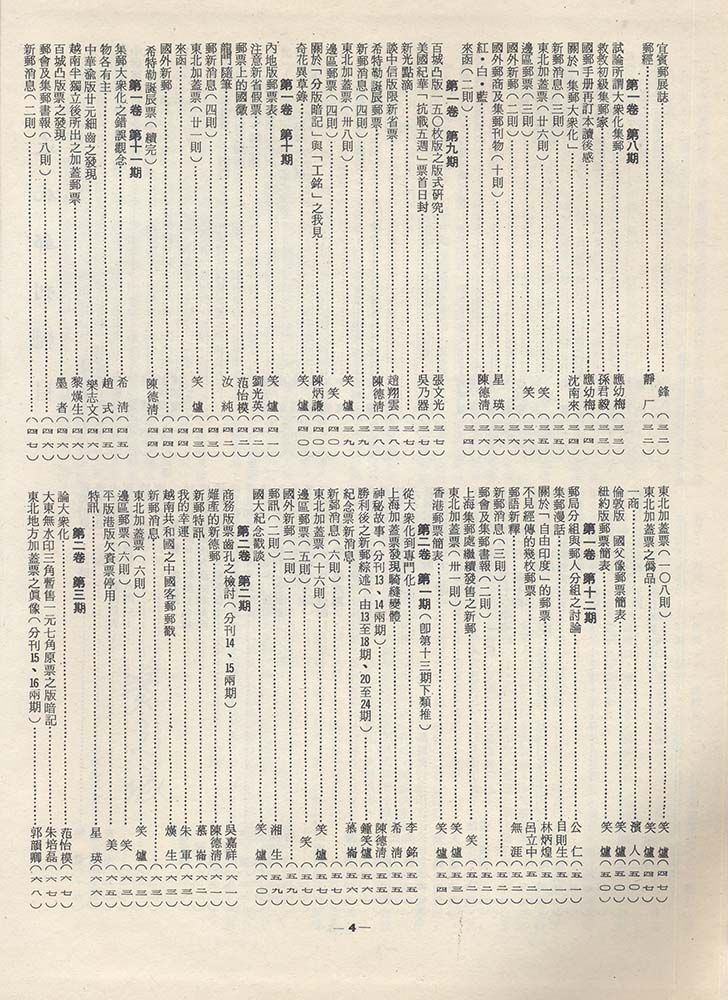 宜賓郵展誌……鋒(三二)
郵經……靜厂(三二)
第一卷 第八期
試論所謂大衆化集郵……應幼梅(三三)
救救初級集郵家……孫君毅(三三)
國郵手冊再訂本讀後感……應幼梅(三四)
關於「集郵大衆化」……沈南來(三四)
新郵消息(三則)……(三五)
東北加蓋票(廿六則)……笑爐(三五)
邊區郵票(三則)……笑(三六)
國外新郵(二則)……(三六)
國外郵商及集郵刊物(十則)……星瑛(三六)
紅・白・藍……陳德淸(三六)
來函(二則)
第一卷 第九期
百城凸版一五〇枚版之版式硏究……張文光(三七)
美國紀華「抗戰五週」票首日封……吳乃器(三七)
新光點滴……(三七)
談中信版限新省票……趙翔雲(三八)
希特勒誕辰郵票……陳德淸(三八)
新郵消息(四則)……(三九)
東北加蓋票(卅八則)……笑爐(三九)
邊區郵票(四則)……笑(四〇)
關於「分版暗記」與「工銘」之我見……陳炳謙(四〇)
奇花異草錄……笑爐(四〇)
第一卷 第十期
內地版郵票表……笑爐(四一)
注意新省假票……劉光英(四二)
郵票上的國徽……范怡模(四二)
龍門隨筆……汝純(四二)
郵新消息(四則)……(四三)
東北加蓋票(廿一則)……笑爐(四三)
來函……(四四)
國外新郵……(四四)
希特勒誕辰票(續完)……陳德淸(四四)
第一卷 第十一期
集郵大衆化之錯誤觀念……希淸(四五)
物各有主……趙式(四五)
中華龠版廿元細齒之發現……樂志文(四六)
越南半獨立後所出之加蓋郵票……黎熯生(四六)
百城凸版票之發現……墨者(四六)
郵會及集郵書報(八則)……(四七)
新郵消息(二則)……(四七)
東北加蓋票(一〇八則)……笑爐(四七)
東北加蓋票之僞品……笑爐(四九)
一商……濱人(五〇)
倫敦版 國父像郵票簡表……笑爐(五〇)
紐約版郵票簡表……笑爐(五〇)
第一卷 第十二期
郵局分組與郵人分組之討論……公仁(五一)
集郵漫話……目則生(五一)
關於「自由印度」的郵票……林炳煌(五一)
不見經傳的幾枚郵票……呂立中(五二)
郵語新釋……無涯(五二)
新郵消息(三則)……(五二)
郵會及集郵書報(二則)……(五二)
上海集郵處繼續發售之新郵……笑(五二)
東北加蓋票(卅一則)……笑爐(五三)
香港郵票簡表……笑爐(五四)
第二卷 第一期(卽第十三期下類推)
從大衆化到專門化……李銘(五五)
上海加蓋票發現騎縫變體……希淸(五五)
神秘故事(分刊13、14兩期)……陳德淸(五五)
勝利後之新郵綜述(由13至18期、20至24期)……鍾笑爐(五六)
紀念票新消息……慕崙(五六)
新郵消息(六則)
東北加蓋票(十六則)……笑爐(五九)
邊區郵票(五則)……笑(五九)
國外新郵(二則)……(五九)
郵訊(二則)……湘生(五九)
國大紀念戳談……笑爐(六〇)
第二卷 第二期
商務版票齒孔之檢討(分刊14、15兩期)……吳嘉祥(六一)
難產的新德郵……陳德淸(六一)
新郵特訊……慕崙(六二)
我的幸運……朱軍(六三)
越南共和國之中國客郵郵戳……熯生(六三)
新郵消息
東北加蓋票(六則)……笑爐(六三)
邊區郵票(六則)……笑(六五)
平版港版欠資票停用……美(六五)
特訊……星瑛(六六)
第二卷 第三期
論大衆化……范怡模(六七)
大東無水印三角暫售一元七角原票之版暗記……朱培磊(六七)
東北地方加蓋票之眞像(分刊15、16兩期)……郭韻卿(六八)
—4—